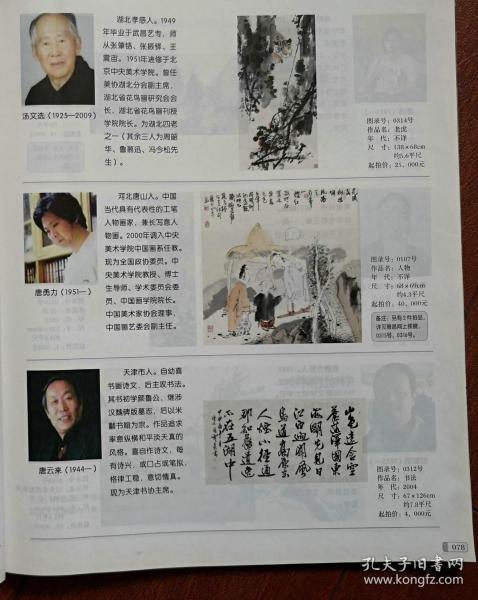 湖北孝感人。1949
年毕业于武昌艺专，师
从张肇铭、张振铎、王
霞宙。1951年进修于北
京中央美术学院。曾任
美协湖北分会副主席，
湖北省花鸟画研究会会
长，湖北省花鸟画刊授
学院院长。为湖北四老
之一（其余三人为周韶
华、鲁慕迅、冯今松先
生）。
汤文选（1925—2009）
图录号：0314号
作品名：老虎
年　代：不详
尺　寸：138×68cm
约5.6平尺
起拍价：25，000元
河北唐山人。中国
当代具有代表性的工笔
人物画家，兼长写意人
物画。2000年调入中央
美术学院中国画系任教。
现为全国政协委员。中
央美术学院教授、博士
生导师、学术委员会委
员、中国画学院院长。
中国美术家协会理事，
中国画艺委会副主任。
唐勇力（1951—）
图录号：0107号
作品名：人物
年　代：不详
尺　寸：68×69cm
约4.3平尺
起拍价：40，000元
备注：另有2件拍品，
详见雅昌网上预展，
0315号、0316号。
天津市人。自幼喜
书画诗文，后主攻书法。
其书初学颜鲁公，继涉
汉魏碑版墓志，后以米
黻书翰为宗。作品追求
率意纵横和平淡天真的
风格。喜自作诗文，每
有诗兴，或口占或笔拟，
格律工稳，意切情真。
现为天津书协主席。
唐云来（1944—）
山色远含空
苍茫泽国东
海明先见日
江白迥闻风
鸟道高原去
人烟小径通
那知旧遗逸
不在五湖中
图录号：0312号
作品名：书法
年　代：2004
尺　寸：67×126cm
约7.8平尺
起拍价：4，000元
078
孔夫子旧书网
www.kongfz.com